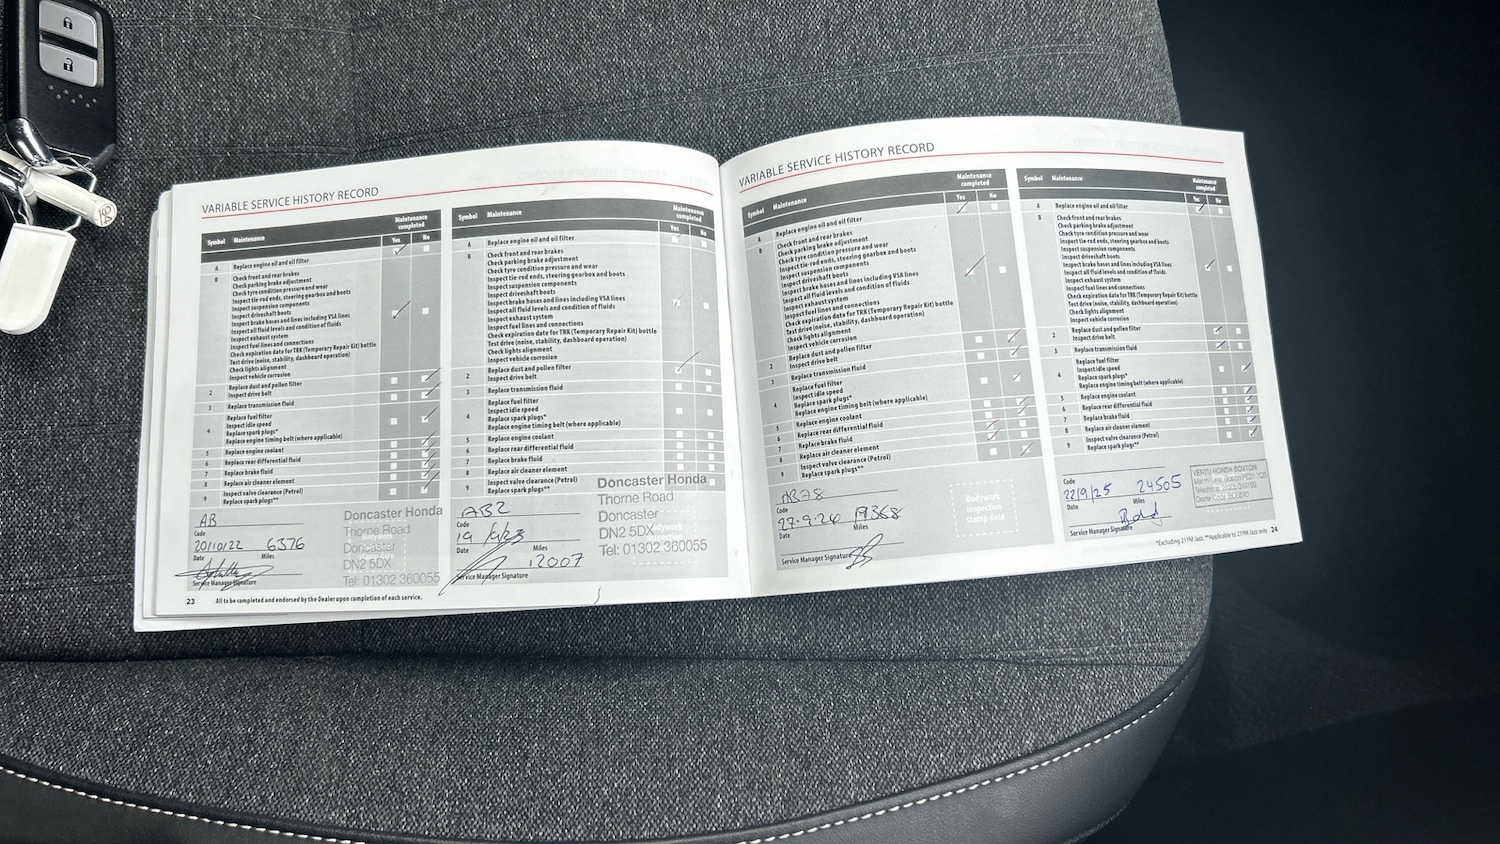 VARIABLE SERVICE HISTORY RECORD
Symbol Maintenance Maintenance completed
Yes No
A Replace engine oil and oil filter
B Check front and rear brakes
Check parking brake adjustment
Check tyre condition pressure and wear
Inspect tie-rod ends, steering gearbox and boots
Inspect suspension components
Inspect driveshaft boots
Inspect brake hoses and lines including VSA lines
Inspect all fluid levels and condition of fluids
Inspect exhaust system
Inspect fuel lines and connections
Check expiration date for TRK (Temporary Repair Kit) bottle
Test drive (noise, stability, dashboard operation)
Check lights alignment
Inspect vehicle corrosion
2 Replace dust and pollen filter
Inspect drive belt
3 Replace transmission fluid
4 Replace fuel filter
Inspect idle speed
Replace spark plugs*
Replace engine timing belt (where applicable)
5 Replace engine coolant
6 Replace rear differential fluid
7 Replace brake fluid
8 Replace air cleaner element
9 Inspect valve clearance (Petrol)
Replace spark plugs**
AB
Code
20/10/22 6376
Date Miles
Service Manager Signature
Doncaster Honda
Thorne Road
Doncaster
DN2 5DX
Tel: 01302 360055
23 All to be completed and endorsed by the Dealer upon completion of each service.
Symbol Maintenance Maintenance completed
Yes No
A Replace engine oil and oil filter
B Check front and rear brakes
Check parking brake adjustment
Check tyre condition pressure and wear
Inspect tie-rod ends, steering gearbox and boots
Inspect suspension components
Inspect driveshaft boots
Inspect brake hoses and lines including VSA lines
Inspect all fluid levels and condition of fluids
Inspect exhaust system
Inspect fuel lines and connections
Check expiration date for TRK (Temporary Repair Kit) bottle
Test drive (noise, stability, dashboard operation)
Check lights alignment
Inspect vehicle corrosion
2 Replace dust and pollen filter
Inspect drive belt
3 Replace transmission fluid
4 Replace fuel filter
Inspect idle speed
Replace spark plugs*
Replace engine timing belt (where applicable)
5 Replace engine coolant
6 Replace rear differential fluid
7 Replace brake fluid
8 Replace air cleaner element
9 Inspect valve clearance (Petrol)
Replace spark plugs**
AB2
Code
19/9/23
Date Miles
12007
Service Manager Signature
Doncaster Honda
Thorne Road
Doncaster
DN2 5DX
Tel: 01302 360055
VARIABLE SERVICE HISTORY RECORD
Symbol Maintenance Maintenance completed
Yes No
A Replace engine oil and oil filter
B Check front and rear brakes
Check parking brake adjustment
Check tyre condition pressure and wear
Inspect tie-rod ends, steering gearbox and boots
Inspect suspension components
Inspect driveshaft boots
Inspect brake hoses and lines including VSA lines
Inspect all fluid levels and condition of fluids
Inspect exhaust system
Inspect fuel lines and connections
Check expiration date for TRK (Temporary Repair Kit) bottle
Test drive (noise, stability, dashboard operation)
Check lights alignment
Inspect vehicle corrosion
2 Replace dust and pollen filter
Inspect drive belt
3 Replace transmission fluid
4 Replace fuel filter
Inspect idle speed
Replace spark plugs*
Replace engine timing belt (where applicable)
5 Replace engine coolant
6 Replace rear differential fluid
7 Replace brake fluid
8 Replace air cleaner element
9 Inspect valve clearance (Petrol)
Replace spark plugs**
AB78
Code
27-9-24 19368
Date Miles
Service Manager Signature
Bodywork
inspection
stamp date
Symbol Maintenance Maintenance completed
Yes No
A Replace engine oil and oil filter
B Check front and rear brakes
Check parking brake adjustment
Check tyre condition pressure and wear
Inspect tie-rod ends, steering gearbox and boots
Inspect suspension components
Inspect driveshaft boots
Inspect brake hoses and lines including VSA lines
Inspect all fluid levels and condition of fluids
Inspect exhaust system
Inspect fuel lines and connections
Check expiration date for TRK (Temporary Repair Kit) bottle
Test drive (noise, stability, dashboard operation)
Check lights alignment
Inspect vehicle corrosion
2 Replace dust and pollen filter
Inspect drive belt
3 Replace transmission fluid
4 Replace fuel filter
Inspect idle speed
Replace spark plugs*
Replace engine timing belt (where applicable)
5 Replace engine coolant
6 Replace rear differential fluid
7 Replace brake fluid
8 Replace air cleaner element
9 Inspect valve clearance (Petrol)
Replace spark plugs**
Code
22/9/25 24505
Date Miles
Service Manager Signature
VERTU HONDA BOSTON
*Excluding 21YM Jazz. **Applicable to 21YM Jazz only 24